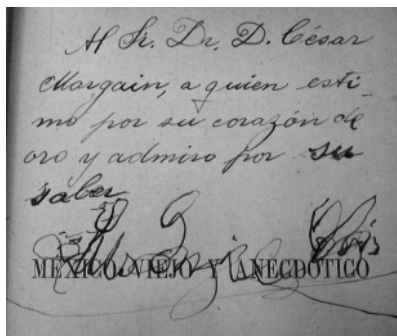 Al Sr. Dr. D. César
Margain, a quien esti-
mo por su corazón de
oro y admiro por su
saber
MÉXICO VIEJO Y ANECDÓTICO